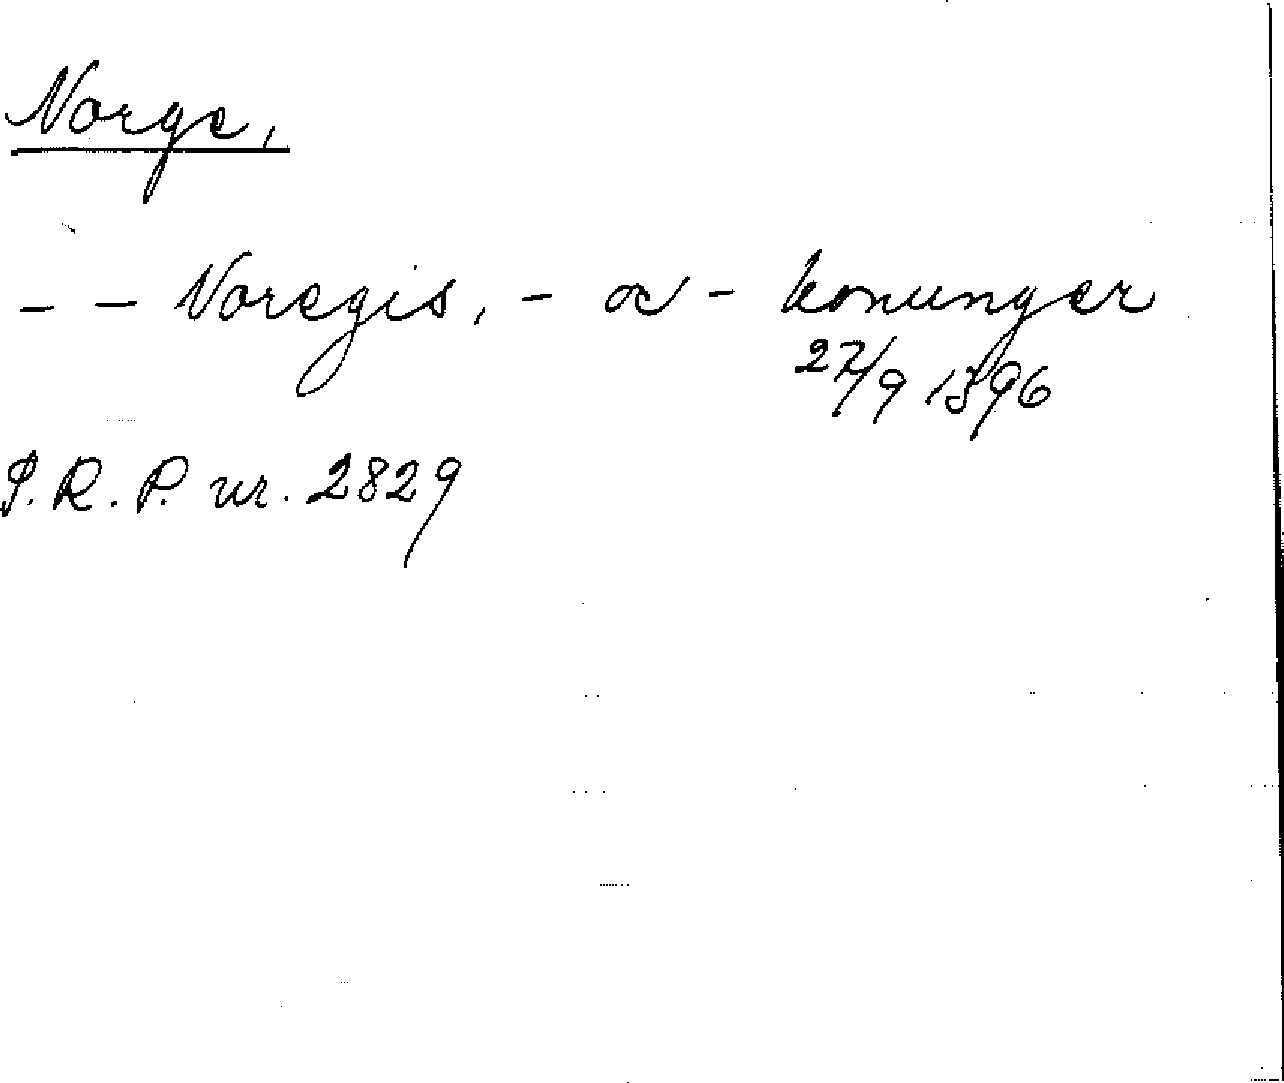 Norge,
- - Noregis, - oc - konunger
27/9 1396
S.R.P. nr. 2829